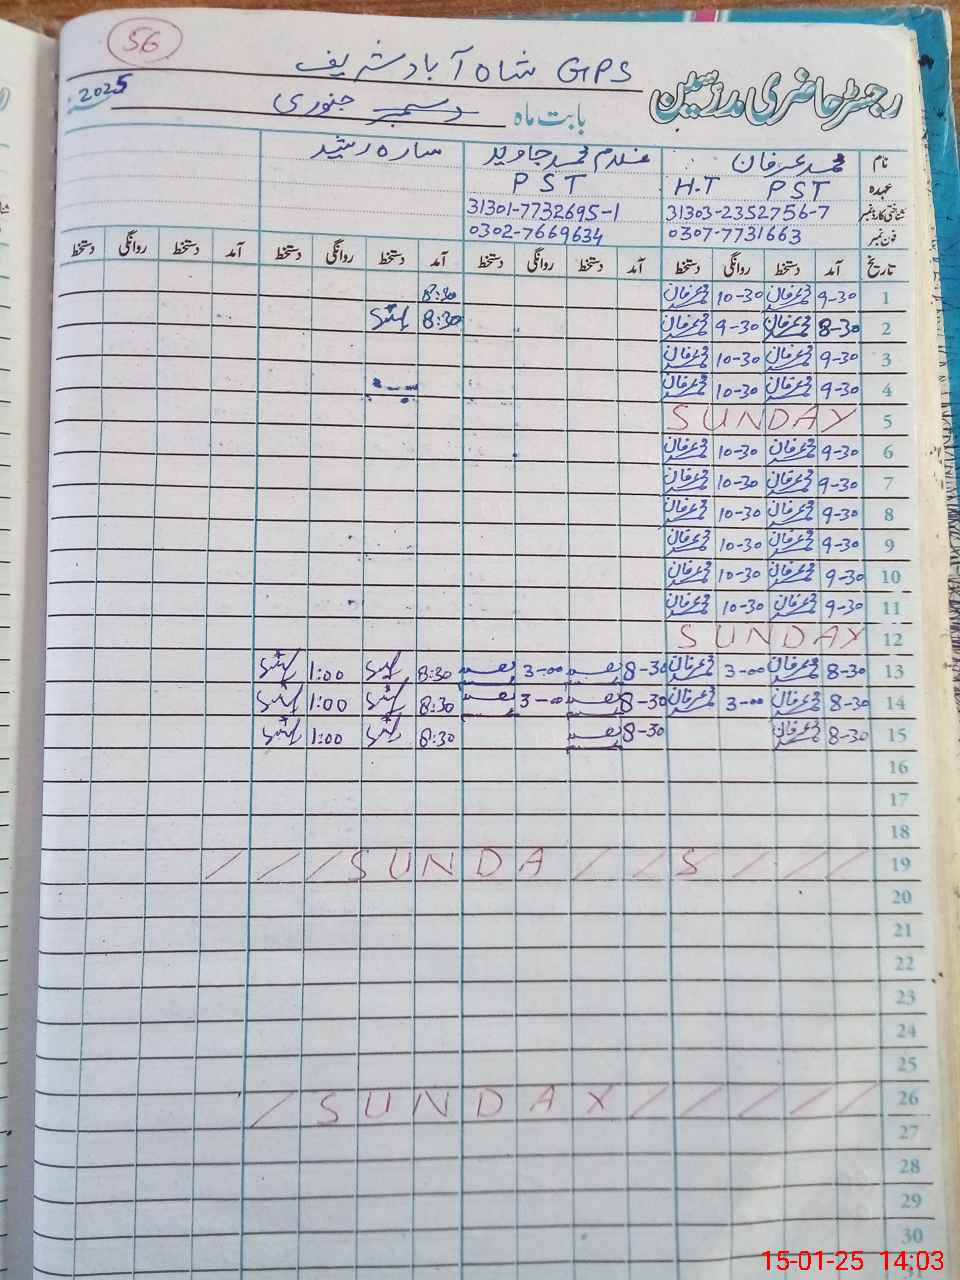 56
GPS شاہ آباد شریف
رجسٹر حاضری مدرسین
بابت ماہ دسمبر جنوری 2025
نام محمد عرفان غلام محمد جاوید سارہ رشید
عہدہ PST H.T PST
شناختی کارڈ نمبر 31303-2352756-7 31301-7732695-1
فون نمبر 0307-7731663 0302-7669634
تاریخ آمد دستخط روانگی دستخط آمد دستخط روانگی دستخط آمد دستخط روانگی دستخط آمد دستخط روانگی دستخط
1 9-30 محمد عرفان 10-30 محمد عرفان 8:30
2 8-30 محمد عرفان 9-30 محمد عرفان 8:30
3 9-30 محمد عرفان 10-30 محمد عرفان
4 9-30 محمد عرفان 10-30 محمد عرفان
5 SUNDAY
6 9-30 محمد عرفان 10-30 محمد عرفان
7 9-30 محمد عرفان 10-30 محمد عرفان
8 9-30 محمد عرفان 10-30 محمد عرفان
9 9-30 محمد عرفان 10-30 محمد عرفان
10 9-30 محمد عرفان 10-30 محمد عرفان
11 9-30 محمد عرفان 10-30 محمد عرفان
12 SUNDAY
13 8-30 محمد عرفان 3-00 محمد عرفان 8-30 3-00 8:30 1:00
14 8-30 محمد عرفان 3-00 محمد عرفان 8-30 3-00 8:30 1:00
15 8-30 محمد عرفان 8-30 8:30 1:00
16
17
18
19 / / / SUNDA / / S / / /
20
21
22
23
24
25
26 / SUNDAY / / / / /
27
28
29
30
15-01-25 14:03